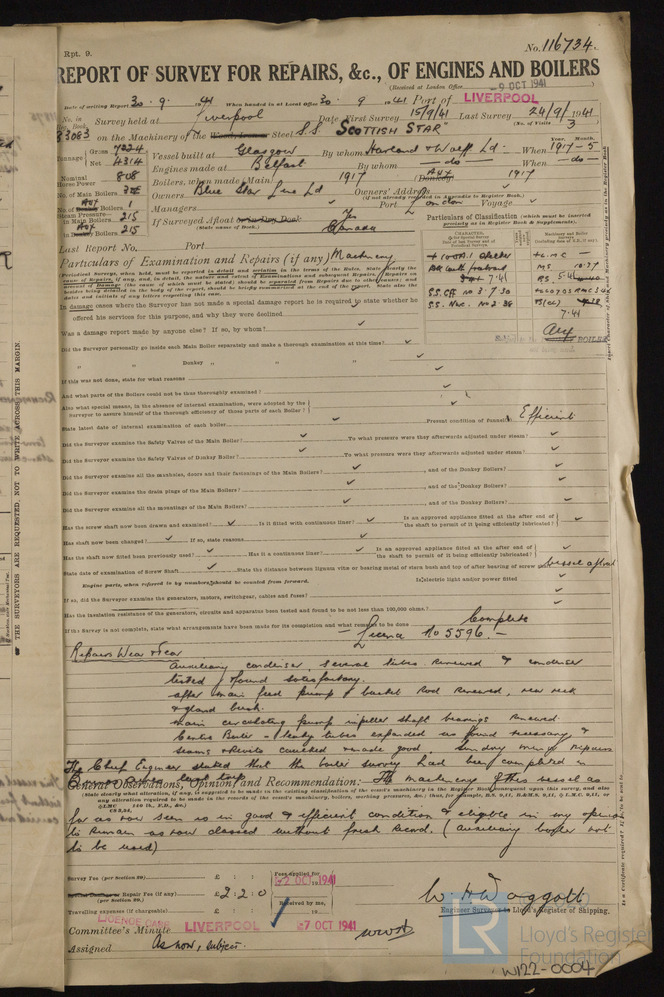 Rpt. 9.
No. 116734.
REPORT OF SURVEY FOR REPAIRS, &c., OF ENGINES AND BOILERS
(Received at London Office -9 OCT 1941)
Date of writing Report 30.9.1941 When handed in at Local Office 30.9.1941 Port of LIVERPOOL
No. in Survey held at Liverpool Date: First Survey 15/9/41 Last Survey 24/9/1941
(No. of Visits 3)
83083 on the Machinery of the Steel S.S "SCOTTISH STAR"
Tonnage Gross 7224 Net 4314
Vessel built at Glasgow By whom Harland & Wolff Ld. When 1917-5
Engines made at Belfast By whom — do — When — do —
Nominal Horse Power 808
Boilers, when made (Main) 1917 (Donkey) Aux 1917
No. of Main Boilers
Owners Blue Star Line Ld Owners' Address
(if not already recorded in Appendix to Register Book.)
No. of Donkey Boilers 1
Managers Port London Voyage
Steam Pressure in Main Boilers 215
in Donkey Boilers 215
If Surveyed Afloat or in Dry Dock Yes
(State name of Dock.) Canada
Last Report No. Port
Particulars of Classification (which must be inserted precisely as in Register Book & Supplements).
Particulars of Examination and Repairs (if any) Machinery
In damage cases where the Surveyor has not made a special damage report he is required to state whether he
offered his services for this purpose, and why they were declined
Was a damage report made by anyone else? If so, by whom?
Did the Surveyor personally go inside each Main Boiler separately and make a thorough examination at this time?
" " Donkey " " " "
If this was not done, state for what reasons
And what parts of the Boilers could not be thus thoroughly examined?
Also what special means, in the absence of internal examination, were adopted by the
Surveyor to assure himself of the thorough efficiency of those parts of each Boiler?
State latest date of internal examination of each boiler Present condition of funnel Efficient
Did the Surveyor examine the Safety Valves of the Main Boiler? To what pressure were they afterwards adjusted under steam?
Did the Surveyor examine the Safety Valves of Donkey Boiler? To what pressure were they afterwards adjusted under steam?
Did the Surveyor examine all the manholes, doors and their fastenings of the Main Boilers? and of the Donkey Boilers?
Did the Surveyor examine the drain plugs of the Main Boilers? and of the Donkey Boilers?
Did the Surveyor examine all the mountings of the Main Boilers? and of the Donkey Boilers?
Has the screw shaft now been drawn and examined? Is it fitted with continuous liner? Is an approved appliance fitted at the after end of the shaft to permit of it being efficiently lubricated?
Has shaft now been changed? If so, state reasons
Has the shaft now fitted been previously used? Has it a continuous liner? Is an approved appliance fitted at the after end of the shaft to permit of it being efficiently lubricated?
State date of examination of Screw Shaft State the distance between lignum vitæ or bearing metal of stern bush and top of after bearing of screw shaft Vessel afloat
Engine parts, when referred to by numbers, should be counted from forward. Is electric light and/or power fitted
If so, did the Surveyor examine the generators, motors, switchgear, cables and fuses?
Has the insulation resistance of the generators, circuits and apparatus been tested and found to be not less than 100,000 ohms?
If the Survey is not complete, state what arrangements have been made for its completion and what remains to be done Complete
— Licence No 5596. —
Repairs Wear & Tear
Auxiliary condenser, several tubes renewed & condenser
tested & found satisfactory.
After main feed pump & bucket rod renewed, new neck
& gland bush.
Main circulating pump impeller shaft bearings renewed.
Centre Boiler – leaky tubes expanded as found necessary &
seams & rivets caulked & made good, sundry minor repairs
The Chief Engineer stated that the boiler survey had been completed in
General Observations, Opinion, and Recommendation:— The machinery of this vessel as
far as now seen is in good & efficient condition & eligible in my opinion
to remain as now classed without fresh record. (Auxiliary boiler not
to be used)
Survey Fee (per Section 29) £ : :
Repair Fee (if any) (per Section 29.) £2.2.0
Travelling expenses (if chargeable) £ : :
Fees applied for 2 OCT 1941
Received by me,
LICENCE CASE
W. H. Waggott
Engineer Surveyor to Lloyd's Register of Shipping.
Committee's Minute LIVERPOOL 7 OCT 1941
Assigned As now, subject
THE SURVEYORS ARE REQUESTED NOT TO WRITE ACROSS THIS MARGIN.
LR Lloyd's Register Foundation
W122-0004